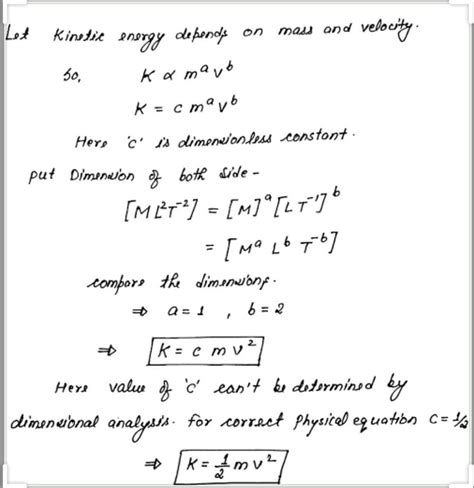 Let Kinetic energy depends on mass and velocity.
So, K ∝ m^a v^b
K = c m^a v^b
Here 'c' is dimensionless constant.
put Dimension of both side -
[M L² T⁻²] = [M]^a [L T⁻¹]^b
= [M^a L^b T^-b]
compare the dimensions.
⇒ a = 1 , b = 2
⇒ K = c m v²
Here value of 'c' can't be determined by
dimensional analysis. for correct physical equation c = ½
⇒ K = ½ m v²